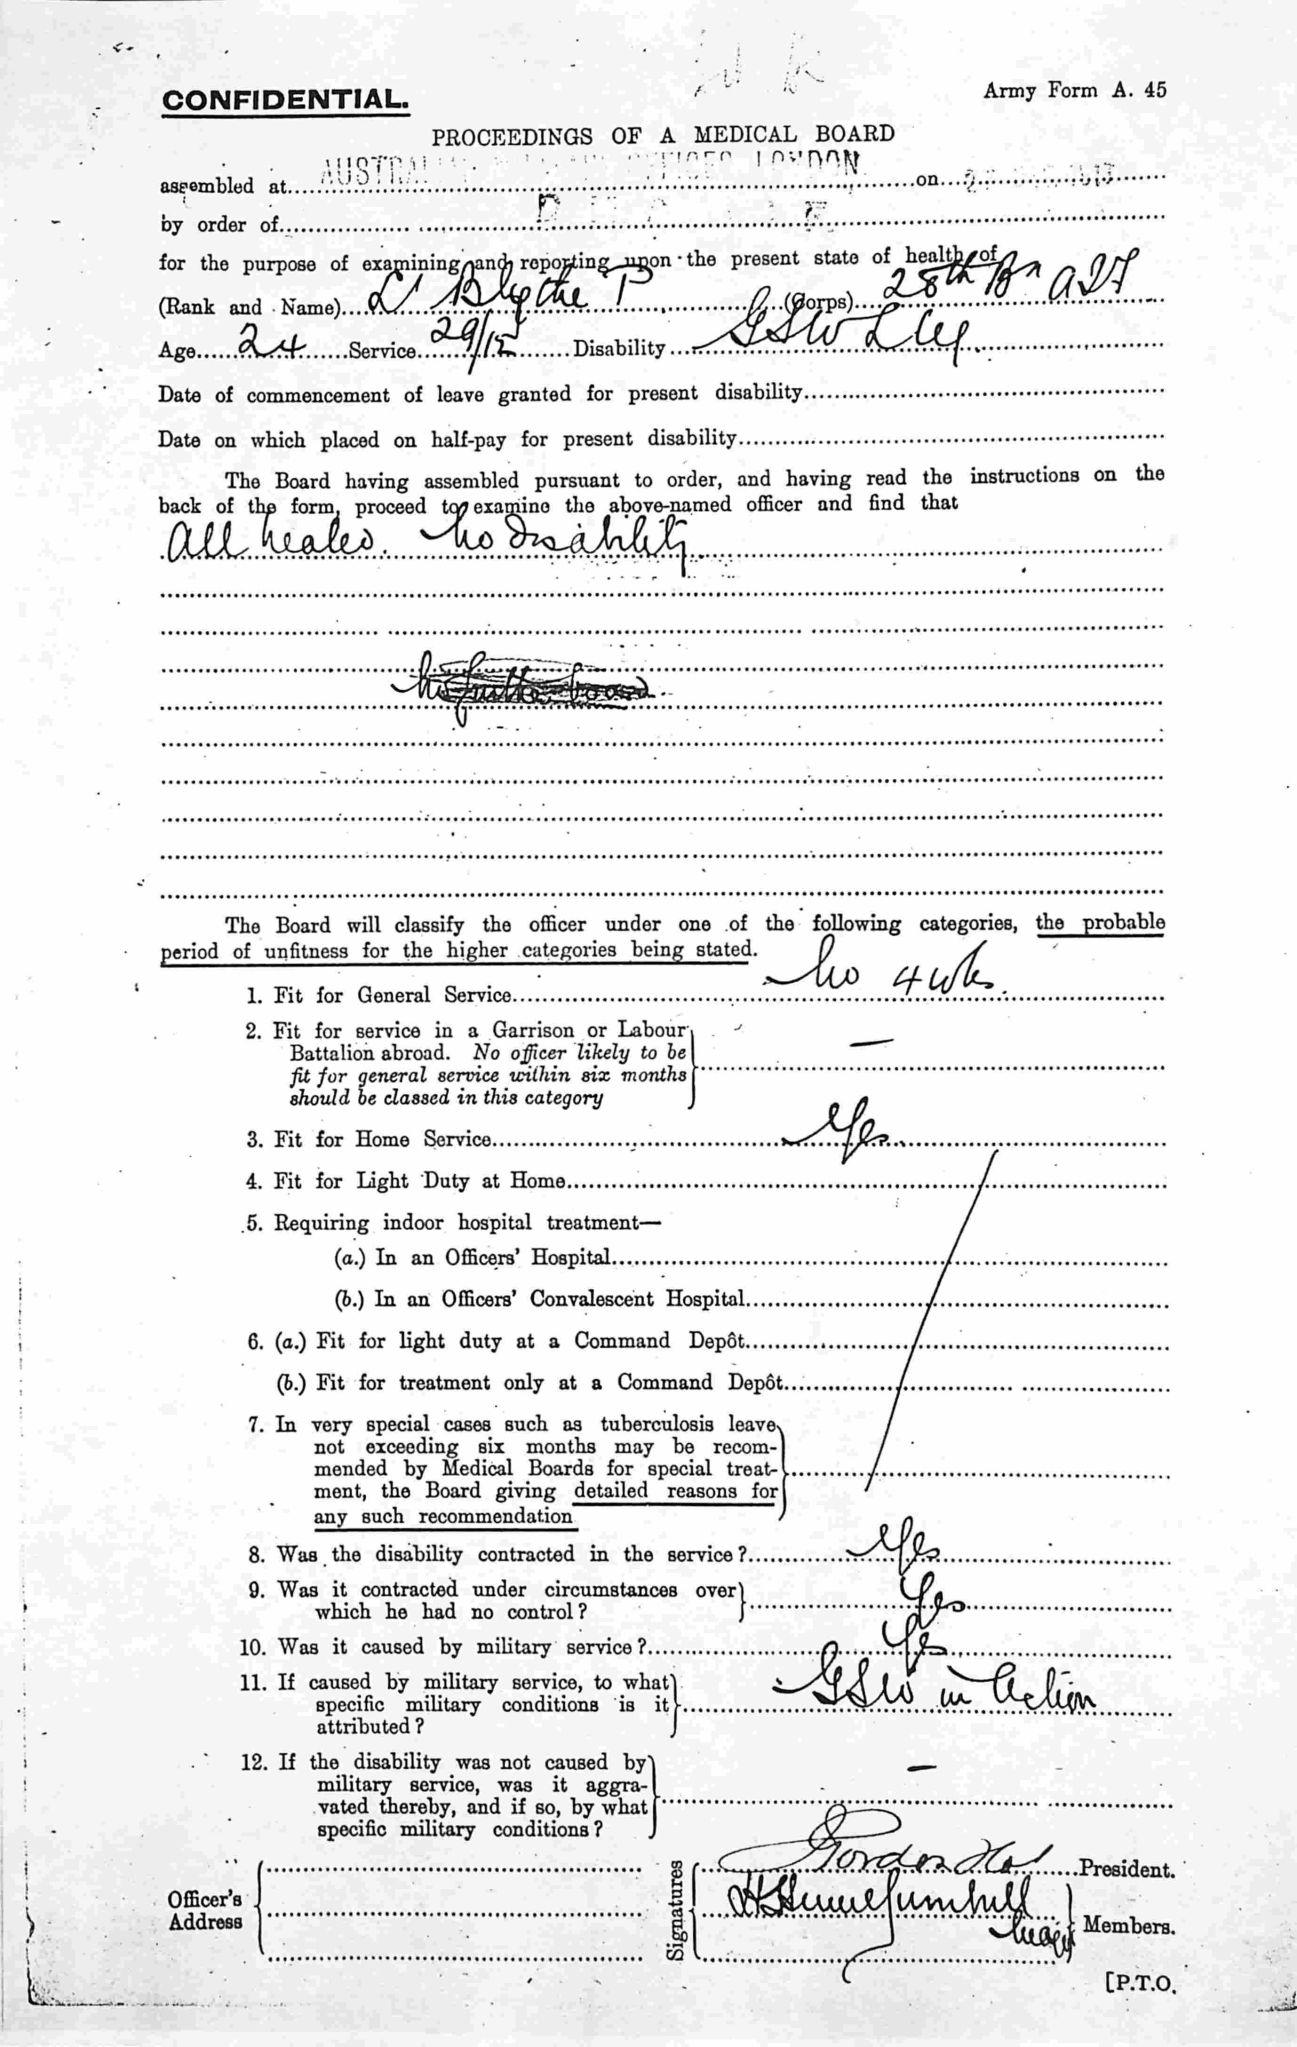 CONFIDENTIAL.
Army Form A. 45
PROCEEDINGS OF A MEDICAL BOARD
assembled at LONDON on
by order of
for the purpose of examining and reporting upon the present state of health of
(Rank and Name) Lt Blythe P (Corps) 28th Bn AIF
Age 24 Service 29/12 Disability GSW L leg
Date of commencement of leave granted for present disability
Date on which placed on half-pay for present disability
The Board having assembled pursuant to order, and having read the instructions on the
back of the form, proceed to examine the above-named officer and find that
All healed. No disability
No further board
The Board will classify the officer under one of the following categories, the probable
period of unfitness for the higher categories being stated.
1. Fit for General Service No 4 wks.
2. Fit for service in a Garrison or Labour
Battalion abroad. No officer likely to be —
fit for general service within six months
should be classed in this category
3. Fit for Home Service Yes
4. Fit for Light Duty at Home
5. Requiring indoor hospital treatment—
(a.) In an Officers' Hospital
(b.) In an Officers' Convalescent Hospital
6. (a.) Fit for light duty at a Command Depôt
(b.) Fit for treatment only at a Command Depôt
7. In very special cases such as tuberculosis leave
not exceeding six months may be recom-
mended by Medical Boards for special treat-
ment, the Board giving detailed reasons for
any such recommendation
8. Was the disability contracted in the service? Yes
9. Was it contracted under circumstances over
which he had no control? Yes
10. Was it caused by military service? Yes
11. If caused by military service, to what
specific military conditions is it GSW in Action
attributed?
12. If the disability was not caused by
military service, was it aggra- —
vated thereby, and if so, by what
specific military conditions?
Officer's
Address
Signatures
Gordon President.
Members.
[P.T.O.